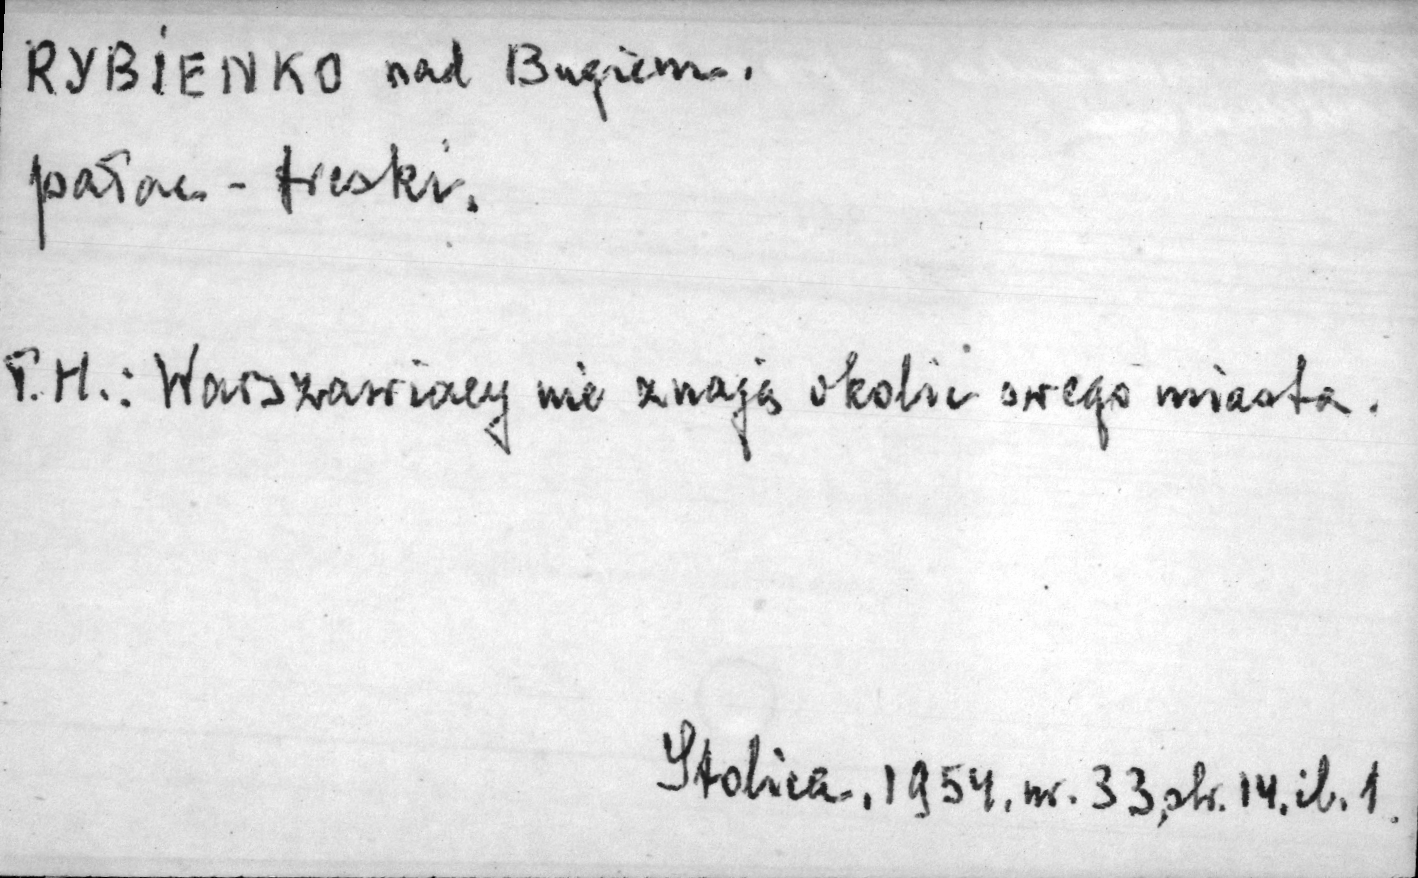 RYBIENKO nad Bugiem.
pałac - freski.
T.H.: Warszawiacy nie znają okolic swego miasta.
Stolica, 1954, nr. 33, str. 14, il. 1.